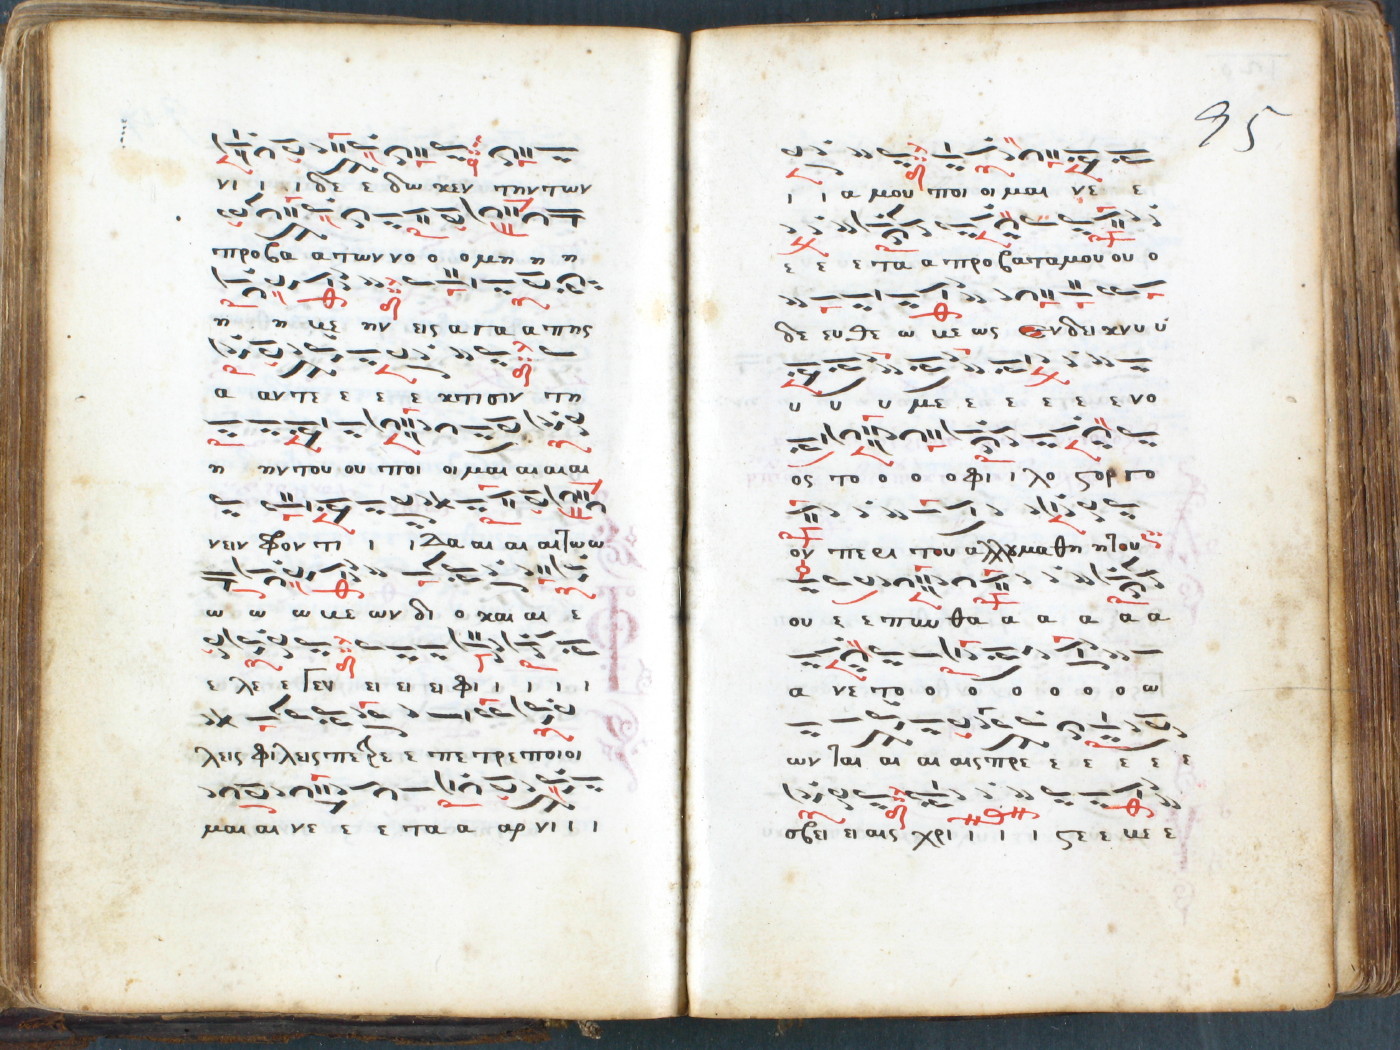 νι ι ι δε ε δω κεν την των
προβα α των νο ο ο μη η η
η η με ην εις α γα α πης
α αν τε ε ε ε κτι σιν τη
η ην του ου ποι οι μαι αι αι αι
νειν φον τι ι ι δα αι αι αι των ω
ω ω ω με ων δι ο και αι ε
ε λε ε γεν ει ει ει φι ι ι ι ι
λεις φι λεις πε ρε ε πε τρε ποι οι
μαι αι νε ε ε τα α αρ νι ι ι
95
ι ι α μου ποι οι μαι νε ε
ε ε ε τα α προβατα μου ου ο
δε ευ θε ω με ως εν δει κνυ υ
υ υ υ με ε ε ε ε ε νο
ος το ο ο ο φι ι λο στορ γο
ον πε ρι του α μα θη η του
ου ε ε πων θα α α α α α
α νε το ο ο ο ο ο ο ω
ων ται αι αι αις πρε ε ε ε ε ε
σβει ει αις χρι ι ι ι στε ε με ε